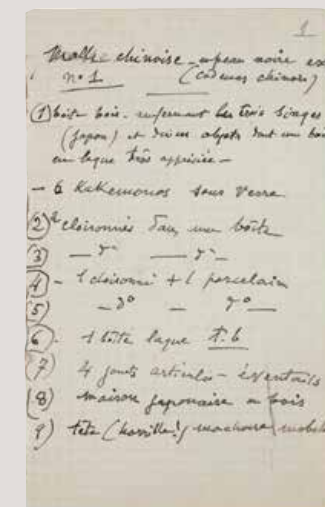 1
Malle chinoise en peau noire ex
n° 1 (cadenas chinois)
1) boîte bois renfermant les trois singes
(Japon) et divers objets dont une boî
en laque très appréciée —
— 6 Kakemonos sous verre.
2) 2 cloisonnés dans une boîte
3) — d° — d° —
4) - 1 cloisonné + 1 porcelain
5) — d° — d° —
6) - 1 boîte laque t. b
7) 4 jouets articulés — éventails
8) maison japonaise en bois
9) tête ( !) machoire mobile